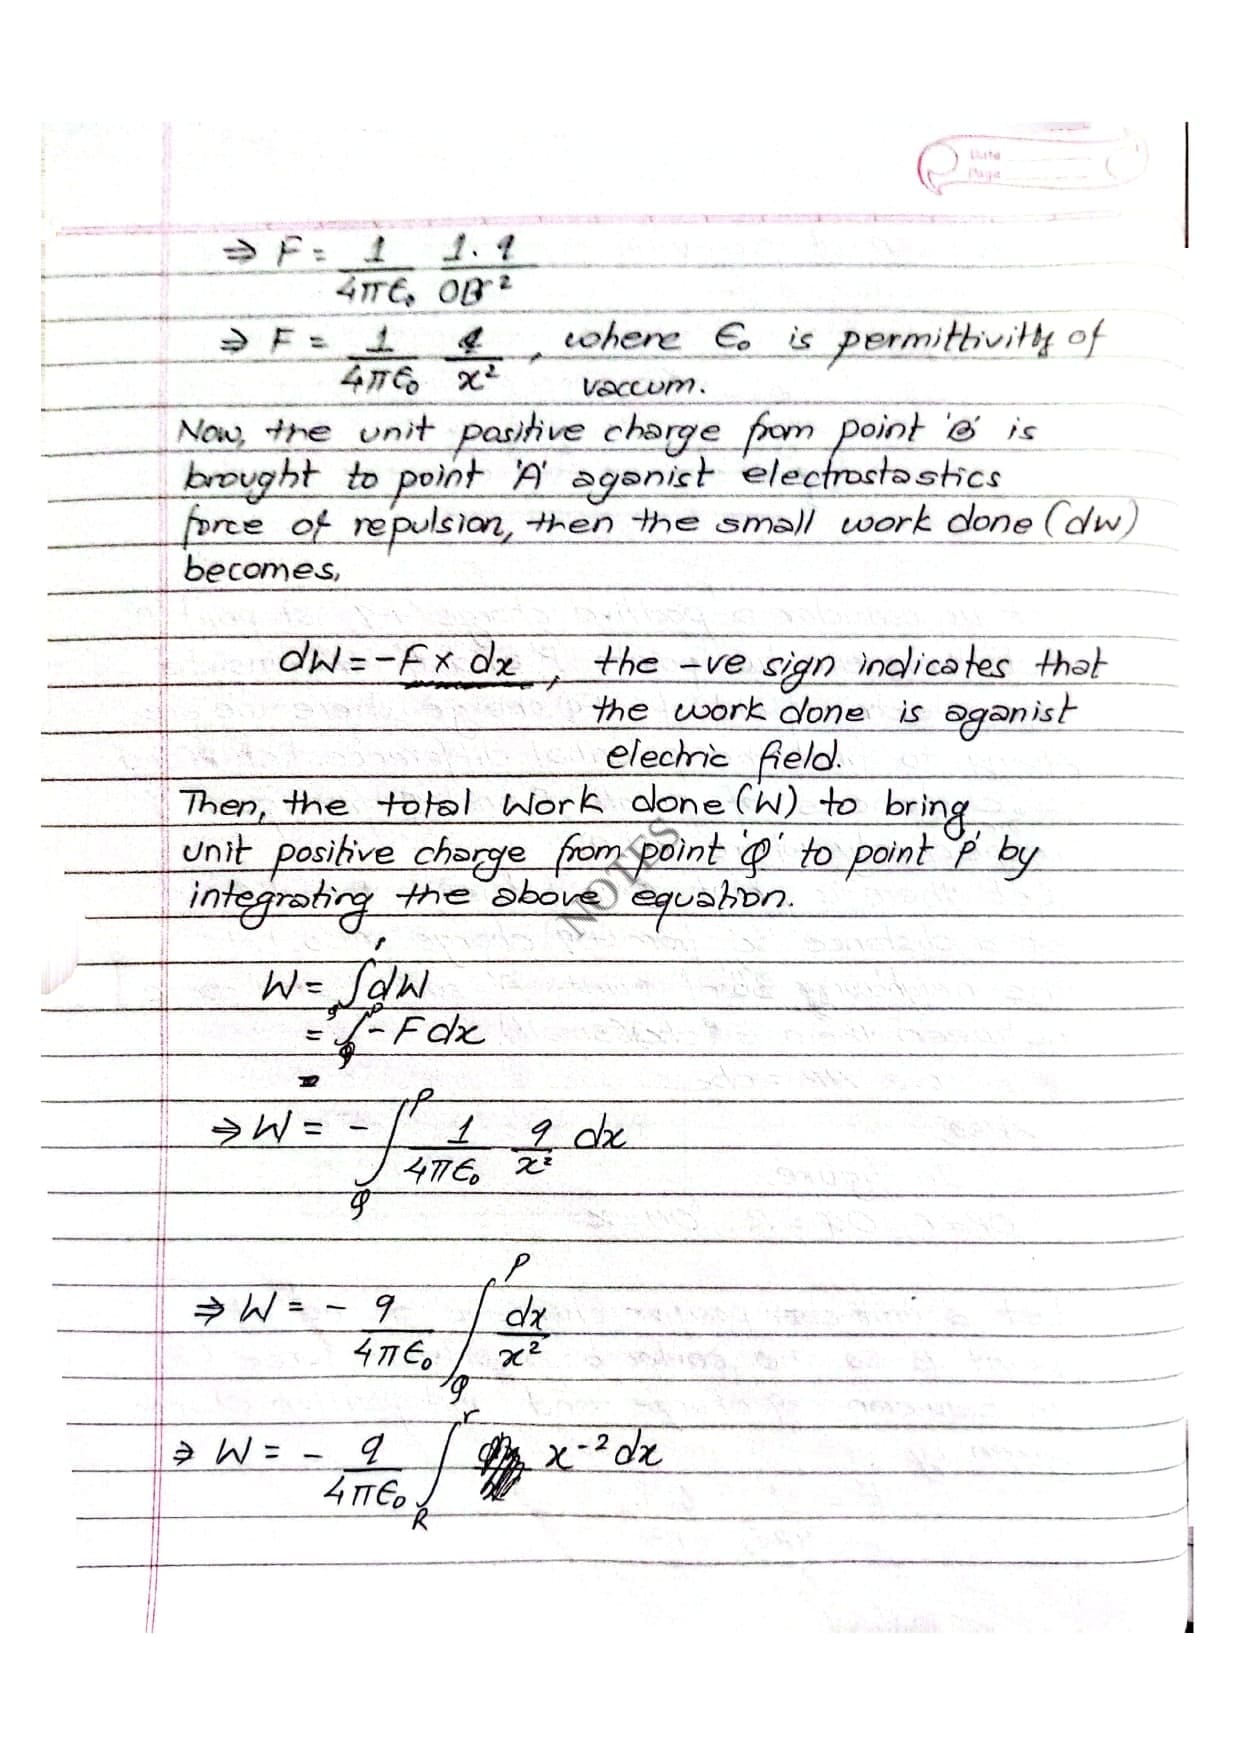 Date
Page
⇒ F = 1/4πϵ₀ 1.q/OB²
⇒ F = 1/4πϵ₀ q/x² , where ϵ₀ is permittivity of
vaccum.
Now, the unit positive charge from point 'B' is
brought to point 'A' aganist electrostastics
force of repulsion, then the small work done (dw)
becomes,
dW = -F x dx , the -ve sign indicates that
the work done is aganist
electric field.
Then, the total work done (W) to bring
unit positive charge from point 'Q' to point 'P' by
integrating the above equation.
NOTES
W = ∫dW
= ∫-Fdx
⇒ W = - ∫_Q^P 1/4πϵ₀ q/x² dx
⇒ W = - q/4πϵ₀ ∫_Q^P dx/x²
⇒ W = - q/4πϵ₀ ∫_R^r x⁻² dx